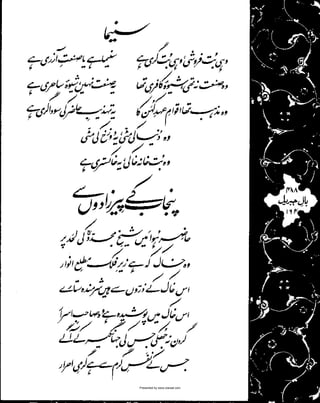 سنیما
وہی بت فروشی وہی بت گری ہے سنیما ہے یا صنعتِ آزری ہے
وہ صنعت نہ تھی شیوۂ کافری تھا یہ صنعت نہیں شیوۂ ساحری ہے
وہ مذہب تھا اقوامِ عہدِ کہن کا یہ تہذیبِ حاضر کی سوداگری ہے
وہ دنیا کی مٹی یہ دوزخ کی مٹی
وہ بت خانہ خاکی یہ خاکستری ہے
پنجاب کے پیرزادوں سے
حاضر ہوا میں شیخِ مجدّد کی لحد پر
وہ خاک کہ ہے زیرِ فلک مطلعِ انوار
اس خاک کے ذرّوں سے ہیں شرمندہ ستارے
اس خاک میں پوشیدہ ہے وہ صاحبِ اسرار
گردن نہ جھکی جس کی جہانگیر کے آگے
جس کے نفسِ گرم سے ہے گرمیِ احرار
۴۸۸
بالِ جبریل